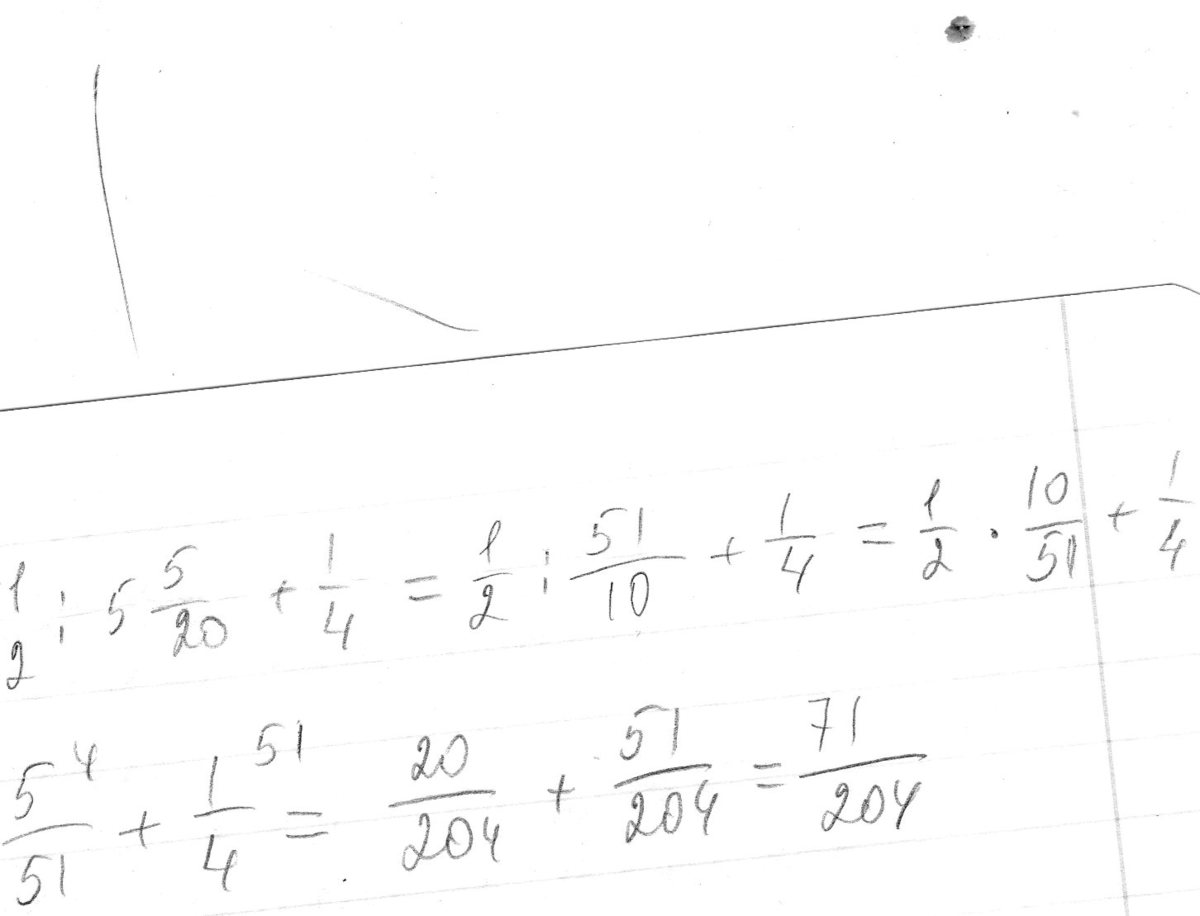 1/2 : 5 5/20 + 1/4 = 1/2 : 51/10 + 1/4 = 1/2 · 10/51 + 1/4
5/51 ⁴ + 1/4 ⁵¹ = 20/204 + 51/204 = 71/204